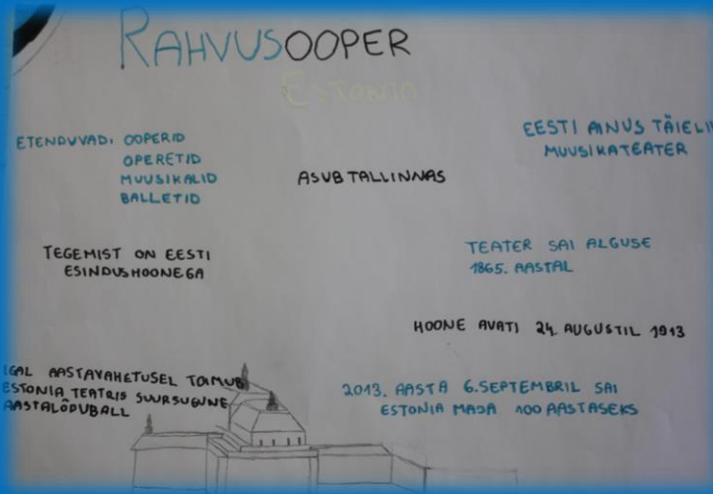 RAHVUSOOPER
ESTONIA
ETENDUVAD: OOPERID
OPERETID
MUUSIKALID
BALLETID
ASUB TALLINNAS
EESTI AINUS TÄIELIK
MUUSIKATEATER
TEGEMIST ON EESTI
ESINDUSHOONEGA
TEATER SAI ALGUSE
1865. AASTAL
HOONE AVATI 24. AUGUSTIL 1913
IGAL AASTAVAHETUSEL TOIMUB
ESTONIA TEATRIS SUURSUGUNE
AASTALÕPUBALL
2013. AASTA 6.SEPTEMBRIL SAI
ESTONIA MAJA 100 AASTASEKS